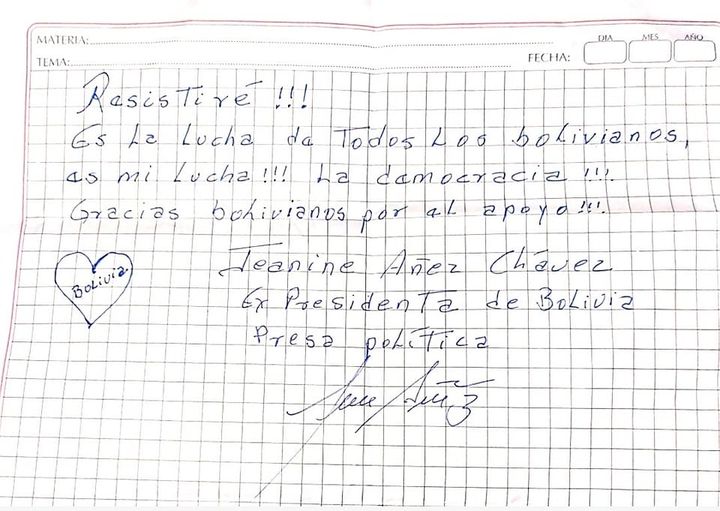 MATERIA:
TEMA:
FECHA:
DIA MES AÑO
Resistiré !!!
Es La Lucha de Todos Los bolivianos,
es mi Lucha!!! La democracia !!!
Gracias bolivianos por el apoyo!!!
Bolivia
Jeanine Añez Chávez
Ex Presidenta de Bolivia
Presa política